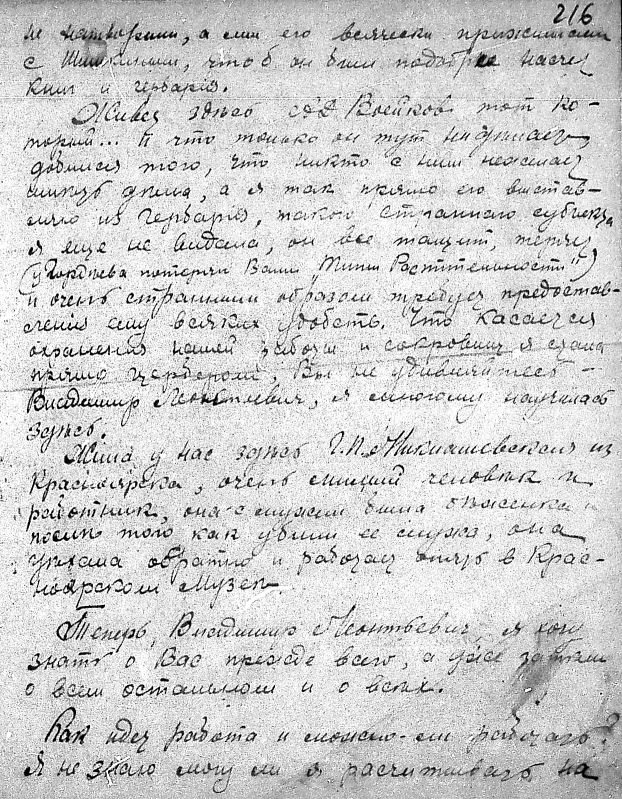 216
не натворили, а мы его всячески прижимали
с Шишкиным, чтоб он был подобрее насчет
книг и гербария.
Живет здесь А.Д. Воейков тот ко-
торый... И что только он тут не делает
добился того, что никто с ним не желает
дела, а я так прямо его выстав-
ляю из гербария, такого странного субъекта
я еще не видала, он все тащит, теряет
(у Гордеева потерял Ваши "Типы Растительности")
и очень странным образом требует предостав-
ления ему всяких удобств. Что касается
охранения нашей работы и сокровищ я стала
прямо цербером, Вы не удивляйтесь -
Владимир Леонтьевич, я многому научилась
здесь.
Жила у нас здесь Г.П. Миклашевская из
Красноярска, очень милый человек и
работник, она с мужем была
после того как убили ее мужа, она
уехала обратно и работает опять в Крас-
ноярском Музее.
Теперь, Владимир Леонтьевич, я хочу
знать о Вас прежде всего, а уже затем
о всем остальном и о всех.
Как идет работа и можно-ли работать?
Я не знаю могу ли я расчитывать на